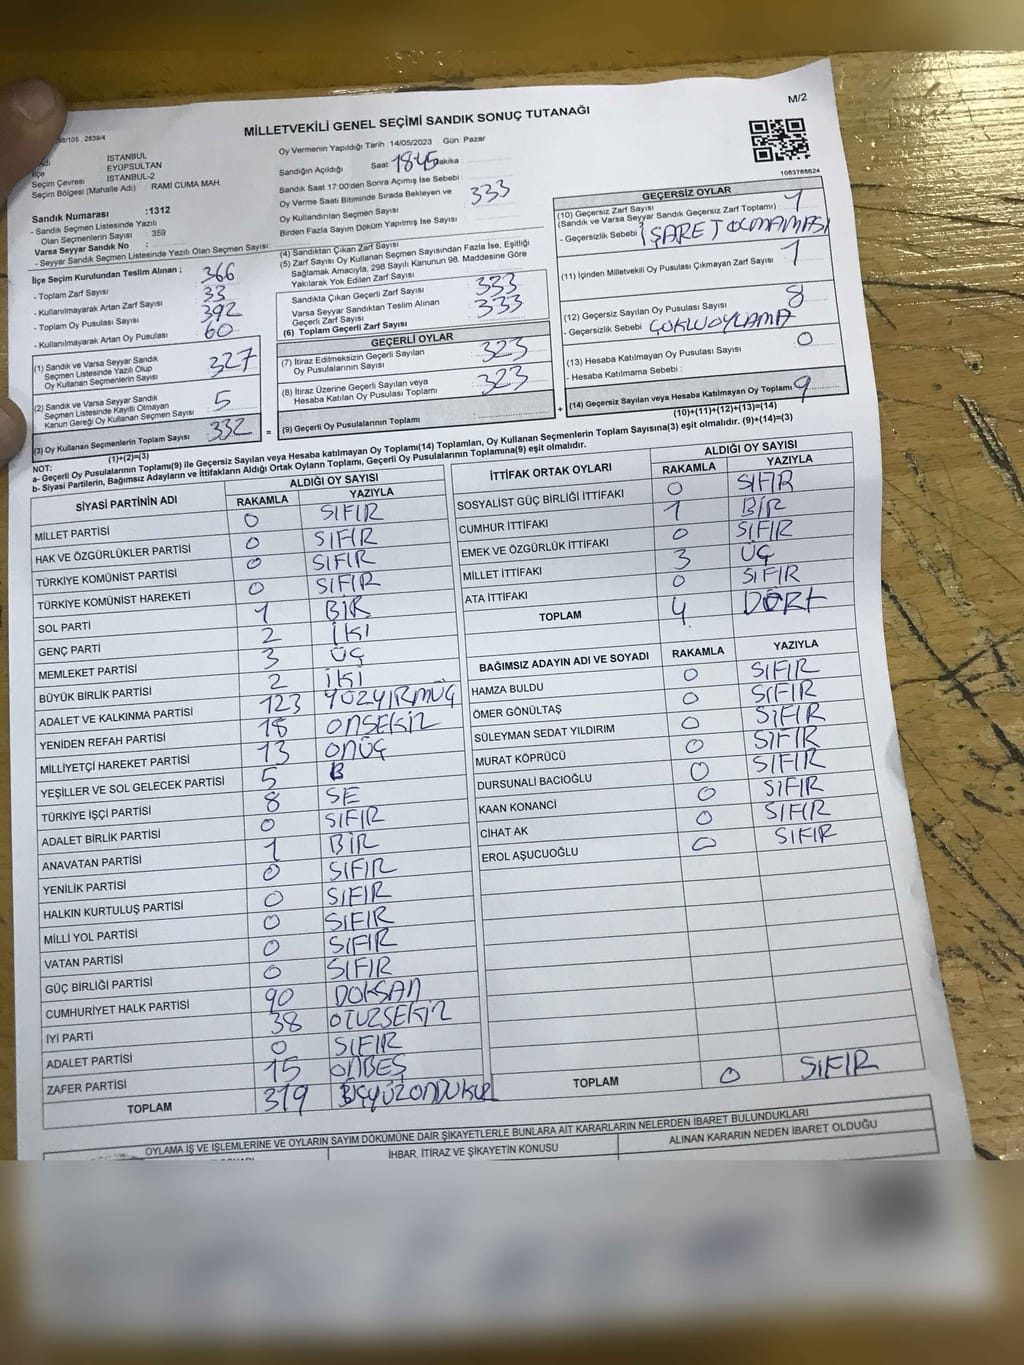 MİLLETVEKİLİ GENEL SEÇİMİ SANDIK SONUÇ TUTANAĞI
M/2
1083788624
İSTANBUL
İlçe EYÜPSULTAN
Seçim Çevresi İSTANBUL-2
Seçim Bölgesi (Mahalle Adı) RAMİ CUMA MAH.
Sandık Numarası :1312
- Sandık Seçmen Listesinde Yazılı
Olan Seçmenlerin Sayısı : 359
Varsa Seyyar Sandık No :
- Seyyar Sandık Seçmen Listesinde Yazılı Olan Seçmen Sayısı:
İlçe Seçim Kurulundan Teslim Alınan ;
- Toplam Zarf Sayısı 366
- Kullanılmayarak Artan Zarf Sayısı 33
- Toplam Oy Pusulası Sayısı 392
- Kullanılmayarak Artan Oy Pusulası 60
(1) Sandık ve Varsa Seyyar Sandık
Seçmen Listesinde Yazılı Olup
Oy Kullanan Seçmenlerin Sayısı 327
(2) Sandık ve Varsa Seyyar Sandık
Seçmen Listesinde Kayıtlı Olmayan
Kanun Gereği Oy Kullanan Seçmen Sayısı 5
(3) Oy Kullanan Seçmenlerin Toplam Sayısı 332
(1)+(2)=(3)
Oy Vermenin Yapıldığı Tarih 14/05/2023 Gün: Pazar
Sandığın Açıldığı Saat 18 45 Dakika
Sandık Saat 17:00'den Sonra Açılmış İse Sebebi :
Oy Verme Saati Bitiminde Sırada Bekleyen ve
Oy Kullandırılan Seçmen Sayısı 333
Birden Fazla Sayım Döküm Yapılmış İse Sayısı
(4) Sandıktan Çıkan Zarf Sayısı
(5) Zarf Sayısı Oy Kullanan Seçmen Sayısından Fazla İse, Eşitliği
Sağlamak Amacıyla, 298 Sayılı Kanunun 98. Maddesine Göre
Yakılarak Yok Edilen Zarf Sayısı
Sandıkta Çıkan Geçerli Zarf Sayısı 333
Varsa Seyyar Sandıktan Teslim Alınan
Geçerli Zarf Sayısı 333
(6) Toplam Geçerli Zarf Sayısı
GEÇERLİ OYLAR
(7) İtiraz Edilmeksizin Geçerli Sayılan
Oy Pusulalarının Sayısı 323
(8) İtiraz Üzerine Geçerli Sayılan veya
Hesaba Katılan Oy Pusulası Toplamı 323
(9) Geçerli Oy Pusulalarının Toplamı
GEÇERSİZ OYLAR
(10) Geçersiz Zarf Sayısı
(Sandık ve Varsa Seyyar Sandık Geçersiz Zarf Toplamı) : 1
- Geçersizlik Sebebi İŞARET OLMAMASI
(11) İçinden Milletvekili Oy Pusulası Çıkmayan Zarf Sayısı 1
(12) Geçersiz Sayılan Oy Pusulası Sayısı 8
- Geçersizlik Sebebi ÇOKLUOYLAMA
(13) Hesaba Katılmayan Oy Pusulası Sayısı 0
- Hesaba Katılmama Sebebi :
(14) Geçersiz Sayılan veya Hesaba Katılmayan Oy Toplamı 9
(10)+(11)+(12)+(13)=(14)
NOT:
a- Geçerli Oy Pusulalarının Toplamı(9) ile Geçersiz Sayılan veya Hesaba katılmayan Oy Toplamı(14) Toplamları, Oy Kullanan Seçmenlerin Toplam Sayısına(3) eşit olmalıdır. (9)+(14)=(3)
b- Siyasi Partilerin, Bağımsız Adayların ve İttifakların Aldığı Ortak Oyların Toplamı, Geçerli Oy Pusulalarının Toplamına(9) eşit olmalıdır.
SİYASİ PARTİNİN ADI ALDIĞI OY SAYISI
RAKAMLA YAZIYLA
MİLLET PARTİSİ 0 SIFIR
HAK VE ÖZGÜRLÜKLER PARTİSİ 0 SIFIR
TÜRKİYE KOMÜNİST PARTİSİ 0 SIFIR
TÜRKİYE KOMÜNİST HAREKETİ 0 SIFIR
SOL PARTİ 1 BİR
GENÇ PARTİ 2 İKİ
MEMLEKET PARTİSİ 3 ÜÇ
BÜYÜK BİRLİK PARTİSİ 2 İKİ
ADALET VE KALKINMA PARTİSİ 123 YÜZYİRMÜÇ
YENİDEN REFAH PARTİSİ 18 ONSEKİZ
MİLLİYETÇİ HAREKET PARTİSİ 13 ONÜÇ
YEŞİLLER VE SOL GELECEK PARTİSİ 5 B
TÜRKİYE İŞÇİ PARTİSİ 8 SE
ADALET BİRLİK PARTİSİ 0 SIFIR
ANAVATAN PARTİSİ 1 BİR
YENİLİK PARTİSİ 0 SIFIR
HALKIN KURTULUŞ PARTİSİ 0 SIFIR
MİLLİ YOL PARTİSİ 0 SIFIR
VATAN PARTİSİ 0 SIFIR
GÜÇ BİRLİĞİ PARTİSİ 0 SIFIR
CUMHURİYET HALK PARTİSİ 90 DOKSAN
İYİ PARTİ 38 OTUZSEKİZ
ADALET PARTİSİ 0 SIFIR
ZAFER PARTİSİ 15 ONBEŞ
TOPLAM 319
İTTİFAK ORTAK OYLARI ALDIĞI OY SAYISI
RAKAMLA YAZIYLA
SOSYALİST GÜÇ BİRLİĞİ İTTİFAKI 0 SIFIR
CUMHUR İTTİFAKI 1 BİR
EMEK VE ÖZGÜRLÜK İTTİFAKI 0 SIFIR
MİLLET İTTİFAKI 3 ÜÇ
ATA İTTİFAKI 0 SIFIR
TOPLAM 4 DÖRT
BAĞIMSIZ ADAYIN ADI VE SOYADI RAKAMLA YAZIYLA
HAMZA BULDU 0 SIFIR
ÖMER GÖNÜLTAŞ 0 SIFIR
SÜLEYMAN SEDAT YILDIRIM 0 SIFIR
MURAT KÖPRÜCÜ 0 SIFIR
DURSUNALİ BACIOĞLU 0 SIFIR
KAAN KONANCİ 0 SIFIR
CİHAT AK 0 SIFIR
EROL AŞUCUOĞLU 0 SIFIR
TOPLAM 0 SIFIR
OYLAMA İŞ VE İŞLEMLERİNE VE OYLARIN SAYIM DÖKÜMÜNE DAİR ŞİKAYETLERLE BUNLARA AİT KARARLARIN NELERDEN İBARET BULUNDUKLARI
İHBAR, İTİRAZ VE ŞİKAYETİN KONUSU
ALINAN KARARIN NEDEN İBARET OLDUĞU